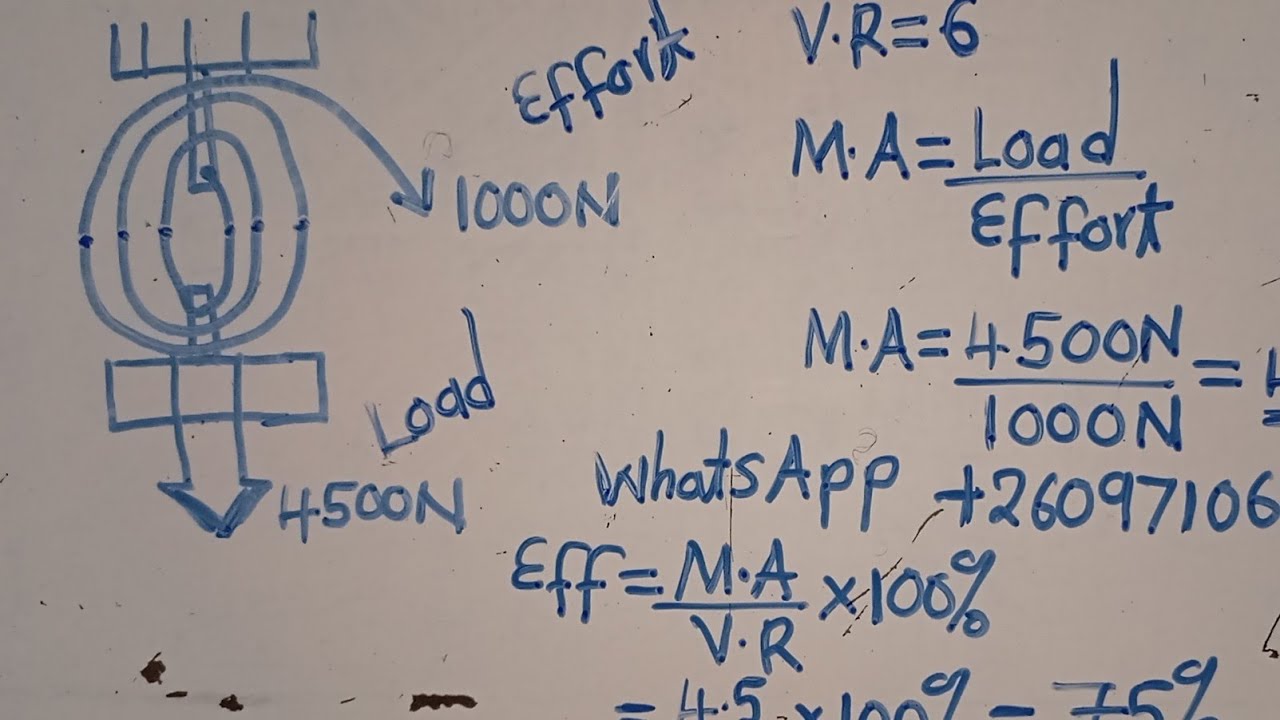 Effort
1000N
Load
4500N
V.R=6
M.A=Load
Effort
M.A=4500N
1000N
=
WhatsApp +26097106
Eff=M.A×100%
V.R
=4.5×100%=75%